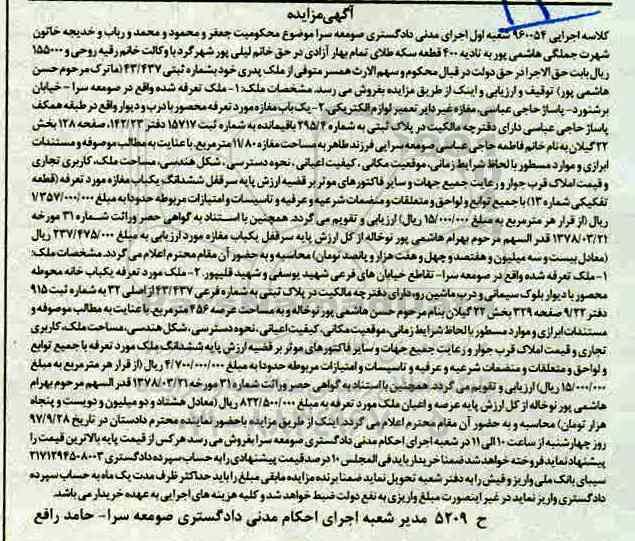 آگهی مزایده
کلاسه اجرایی ۹۶۰۰۵۴ شعبه اول اجرای مدنی دادگستری صومعه سرا موضوع محکومیت جعفر و محمود و محمد و رباب و خدیجه خاتون
شهرت جملگی هاشمی پور به تادیه ۴۰۰ قطعه سکه طلای تمام بهار آزادی در حق خانم لیلی پور شهرگرد با وکالت خانم رقیه روحی و ۱۵۵۰۰۰
ریال بابت حق الاجرا در حق دولت در قبال محکوم و سهم الارث همسر متوفی از ملک پدری خود بشماره ثبتی ۴۳/۴۳۷ (ماترک مرحوم حسن
هاشمی پور) توقیف و ارزیابی و اینک از طریق مزایده بفروش می رسد. مشخصات ملک: ۱- ملک تعرفه شده واقع در صومعه سرا - خیابان
برشنورد- پاساژ حاجی عباسی، مغازه غیر دایر تعمیر لوازم الکتریکی. ۲- یک باب مغازه مورد تعرفه محصور با درب و دیوار واقع در طبقه همکف
پاساژ حاجی عباسی دارای دفترچه مالکیت در پلاک ثبتی به شماره ۲۹۵/۴ باقیمانده به شماره ثبت ۱۵۷۱۷ دفتر ۱۴۲/۲۳، صفحه ۱۲۸ بخش
۲۲ گیلان به نام خانم فاطمه حاجی عباسی صومعه سرایی فرزند طاهر به مساحت مغازه ۱۱/۸۰ مترمربع. با عنایت به مطالب موصوفه و مستندات
ابرازی و موارد مسطور با لحاظ شرایط زمانی، موقعیت مکانی، کیفیت اعیانی، نحوه دسترسی، شکل هندسی، مساحت ملک، کاربری تجاری
و قیمت املاک قرب جوار و رعایت جمیع جهات و سایر فاکتورهای موثر بر قضیه ارزش پایه سرقفل ششدانگ یکباب مغازه مورد تعرفه (قطعه
تفکیکی شماره ۱۳) با جمیع توابع و لواحق و متعلقات و منضمات شرعیه و عرفیه و تاسیسات و امتیازات مربوطه حدودا به مبلغ ۱/۳۵۷/۰۰۰/۰۰۰
ریال (از قرار هر مترمربع به مبلغ ۱۵/۰۰۰/۰۰۰ ریال) ارزیابی و تقویم می گردد. همچنین با استناد به گواهی حصر وراثت شماره ۳۱ مورخه
۱۳۷۸/۰۳/۲۱ قدر السهم مرحوم بهرام هاشمی پور نوخاله از کل ارزش پایه سرقفل یکباب مغازه مورد ارزیابی به مبلغ ۲۳۷/۴۷۵/۰۰۰ ریال
(معادل بیست و سه میلیون و هفتصد و چهل و هفت هزار و پانصد تومان) محاسبه و به حضور آن مقام محترم اعلام می گردد. مشخصات ملک:
۱- ملک تعرفه شده واقع در صومعه سرا- تقاطع خیابان های فرعی شهید یوسفی و شهید قلیپور. ۲- ملک مورد تعرفه یکباب خانه محوطه
محصور با دیوار بلوک سیمانی و درب ماشین رو، دارای دفترچه مالکیت در پلاک ثبتی به شماره فرعی ۴۳/۴۳۷ از اصلی ۳۲ به شماره ثبت ۹۱۵
دفتر ۹/۲۲ صفحه ۳۲۹ بخش ۲۲ گیلان بنام مرحوم حسن هاشمی پور نوخاله و به مساحت عرصه ۴۵۶ مترمربع. با عنایت به مطالب موصوفه و
مستندات ابرازی و موارد مسطور با لحاظ شرایط زمانی، موقعیت مکانی، کیفیت اعیانی، نحوه دسترسی، شکل هندسی، مساحت ملک، کاربری
تجاری و قیمت املاک قرب جوار و رعایت جمیع جهات و سایر فاکتورهای موثر بر قضیه ارزش پایه ششدانگ ملک مورد تعرفه با جمیع توابع
و لواحق و متعلقات و منضمات شرعیه و عرفیه و تاسیسات و امتیازات مربوطه حدودا به مبلغ ۴/۷۰۰/۰۰۰/۰۰۰ ریال (از قرار هر مترمربع به مبلغ
۱۵/۰۰۰/۰۰۰ ریال) ارزیابی و تقویم می گردد. همچنین با استناد به گواهی حصر وراثت شماره ۳۱ مورخه ۱۳۷۸/۰۳/۲۱ قدر السهم مرحوم بهرام
هاشمی پور نوخاله از کل ارزش پایه عرصه و اعیان ملک مورد تعرفه به مبلغ ۸۲۲/۵۰۰/۰۰۰ ریال (معادل هشتاد و دو میلیون و دویست و پنجاه
هزار تومان) محاسبه و به حضور آن مقام محترم اعلام می گردد. اینک از طریق مزایده با حضور نماینده محترم دادستان در تاریخ ۹۷/۹/۲۸
روز چهارشنبه از ساعت ۱۰ الی ۱۱ در شعبه اجرای احکام مدنی دادگستری صومعه سرا بفروش می رسد هرکس از قیمت پایه بالاترین قیمت را
پیشنهاد نماید فروخته خواهد شد ضمنا خریدار باید فی المجلس ۱۰ درصد قیمت پیشنهادی را به حساب سپرده دادگستری ۲۱۷۱۲۹۴۵۰۸۰۰۳
سیبای بانک ملی واریز و فیش را به دفتر شعبه تحویل نماید ضمنا برنده مزایده مابقی مبلغ را باید حداکثر ظرف مدت یک ماه به حساب سپرده
دادگستری واریز نماید در غیر اینصورت مبلغ واریزی به نفع دولت ضبط خواهد شد و کلیه هزینه های اجرایی به عهده خریدار می باشد.
ح ۵۲۰۹ مدیر شعبه اجرای احکام مدنی دادگستری صومعه سرا- حامد رافع